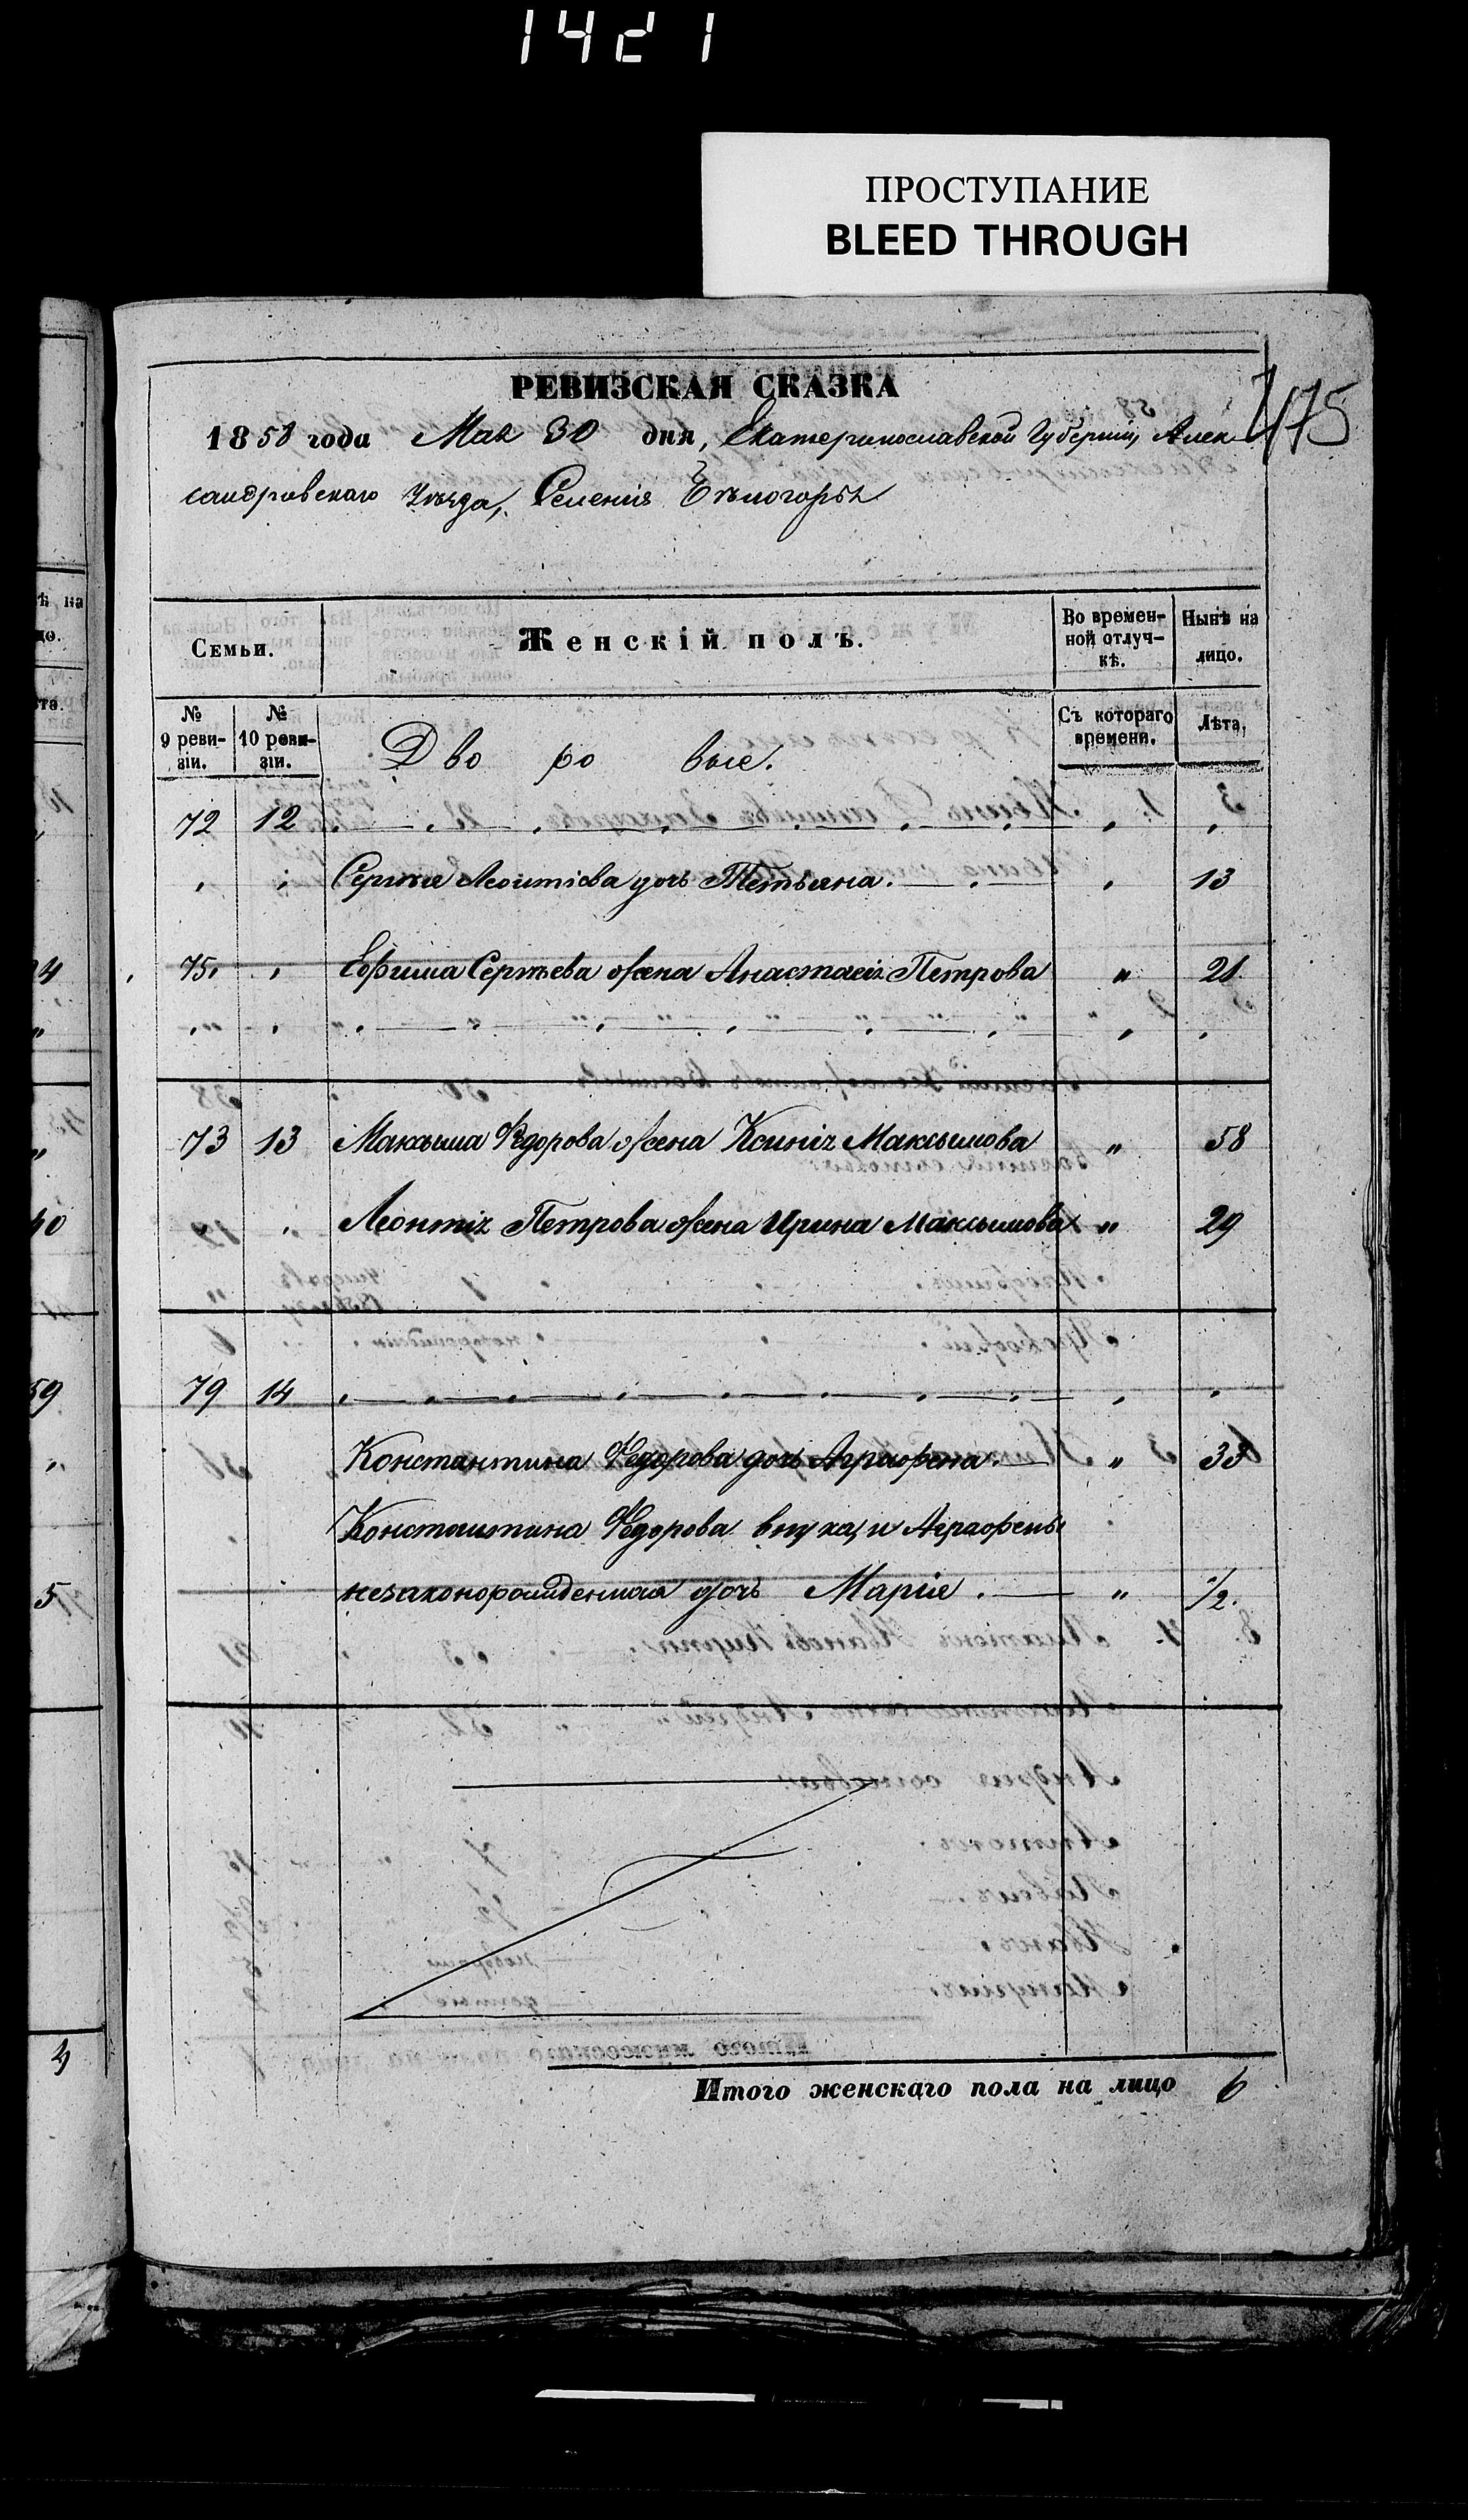 1421
ПРОСТУПАНИЕ
BLEED THROUGH
475
РЕВИЗСКАЯ СКАЗКА
1858 года Мая 30 дня, Екатеринославской Губерніи, Алек
сандровскаго Уѣзда, Селенія Бѣлогорья
Семьи.
Женскій полъ.
Во времен-
ной отлуч-
кѣ.
Нынѣ на
лицо.
№
9 реви-
зіи.
№
10 реви-
зіи.
Дво ро вые.
Съ котораго
времени.
Лѣта.
72 12
Сергѣя Леонтіева дочь Тетьяна. 13
75 Ефима Сергѣева жена Анастасія Петрова „ 21
73 13 Максыма Ѳедорова жена Ксинія Максымова „ 58
Леонтія Петрова жена Ирина Максымова „ 29
79 14
Константина Ѳедорова дочь Аграфена. „ 33
Константина Ѳедорова внука, и Аграфены
незаконорожденная дочь Марія. „ 1/2.
Итого женскаго пола на лицо 6